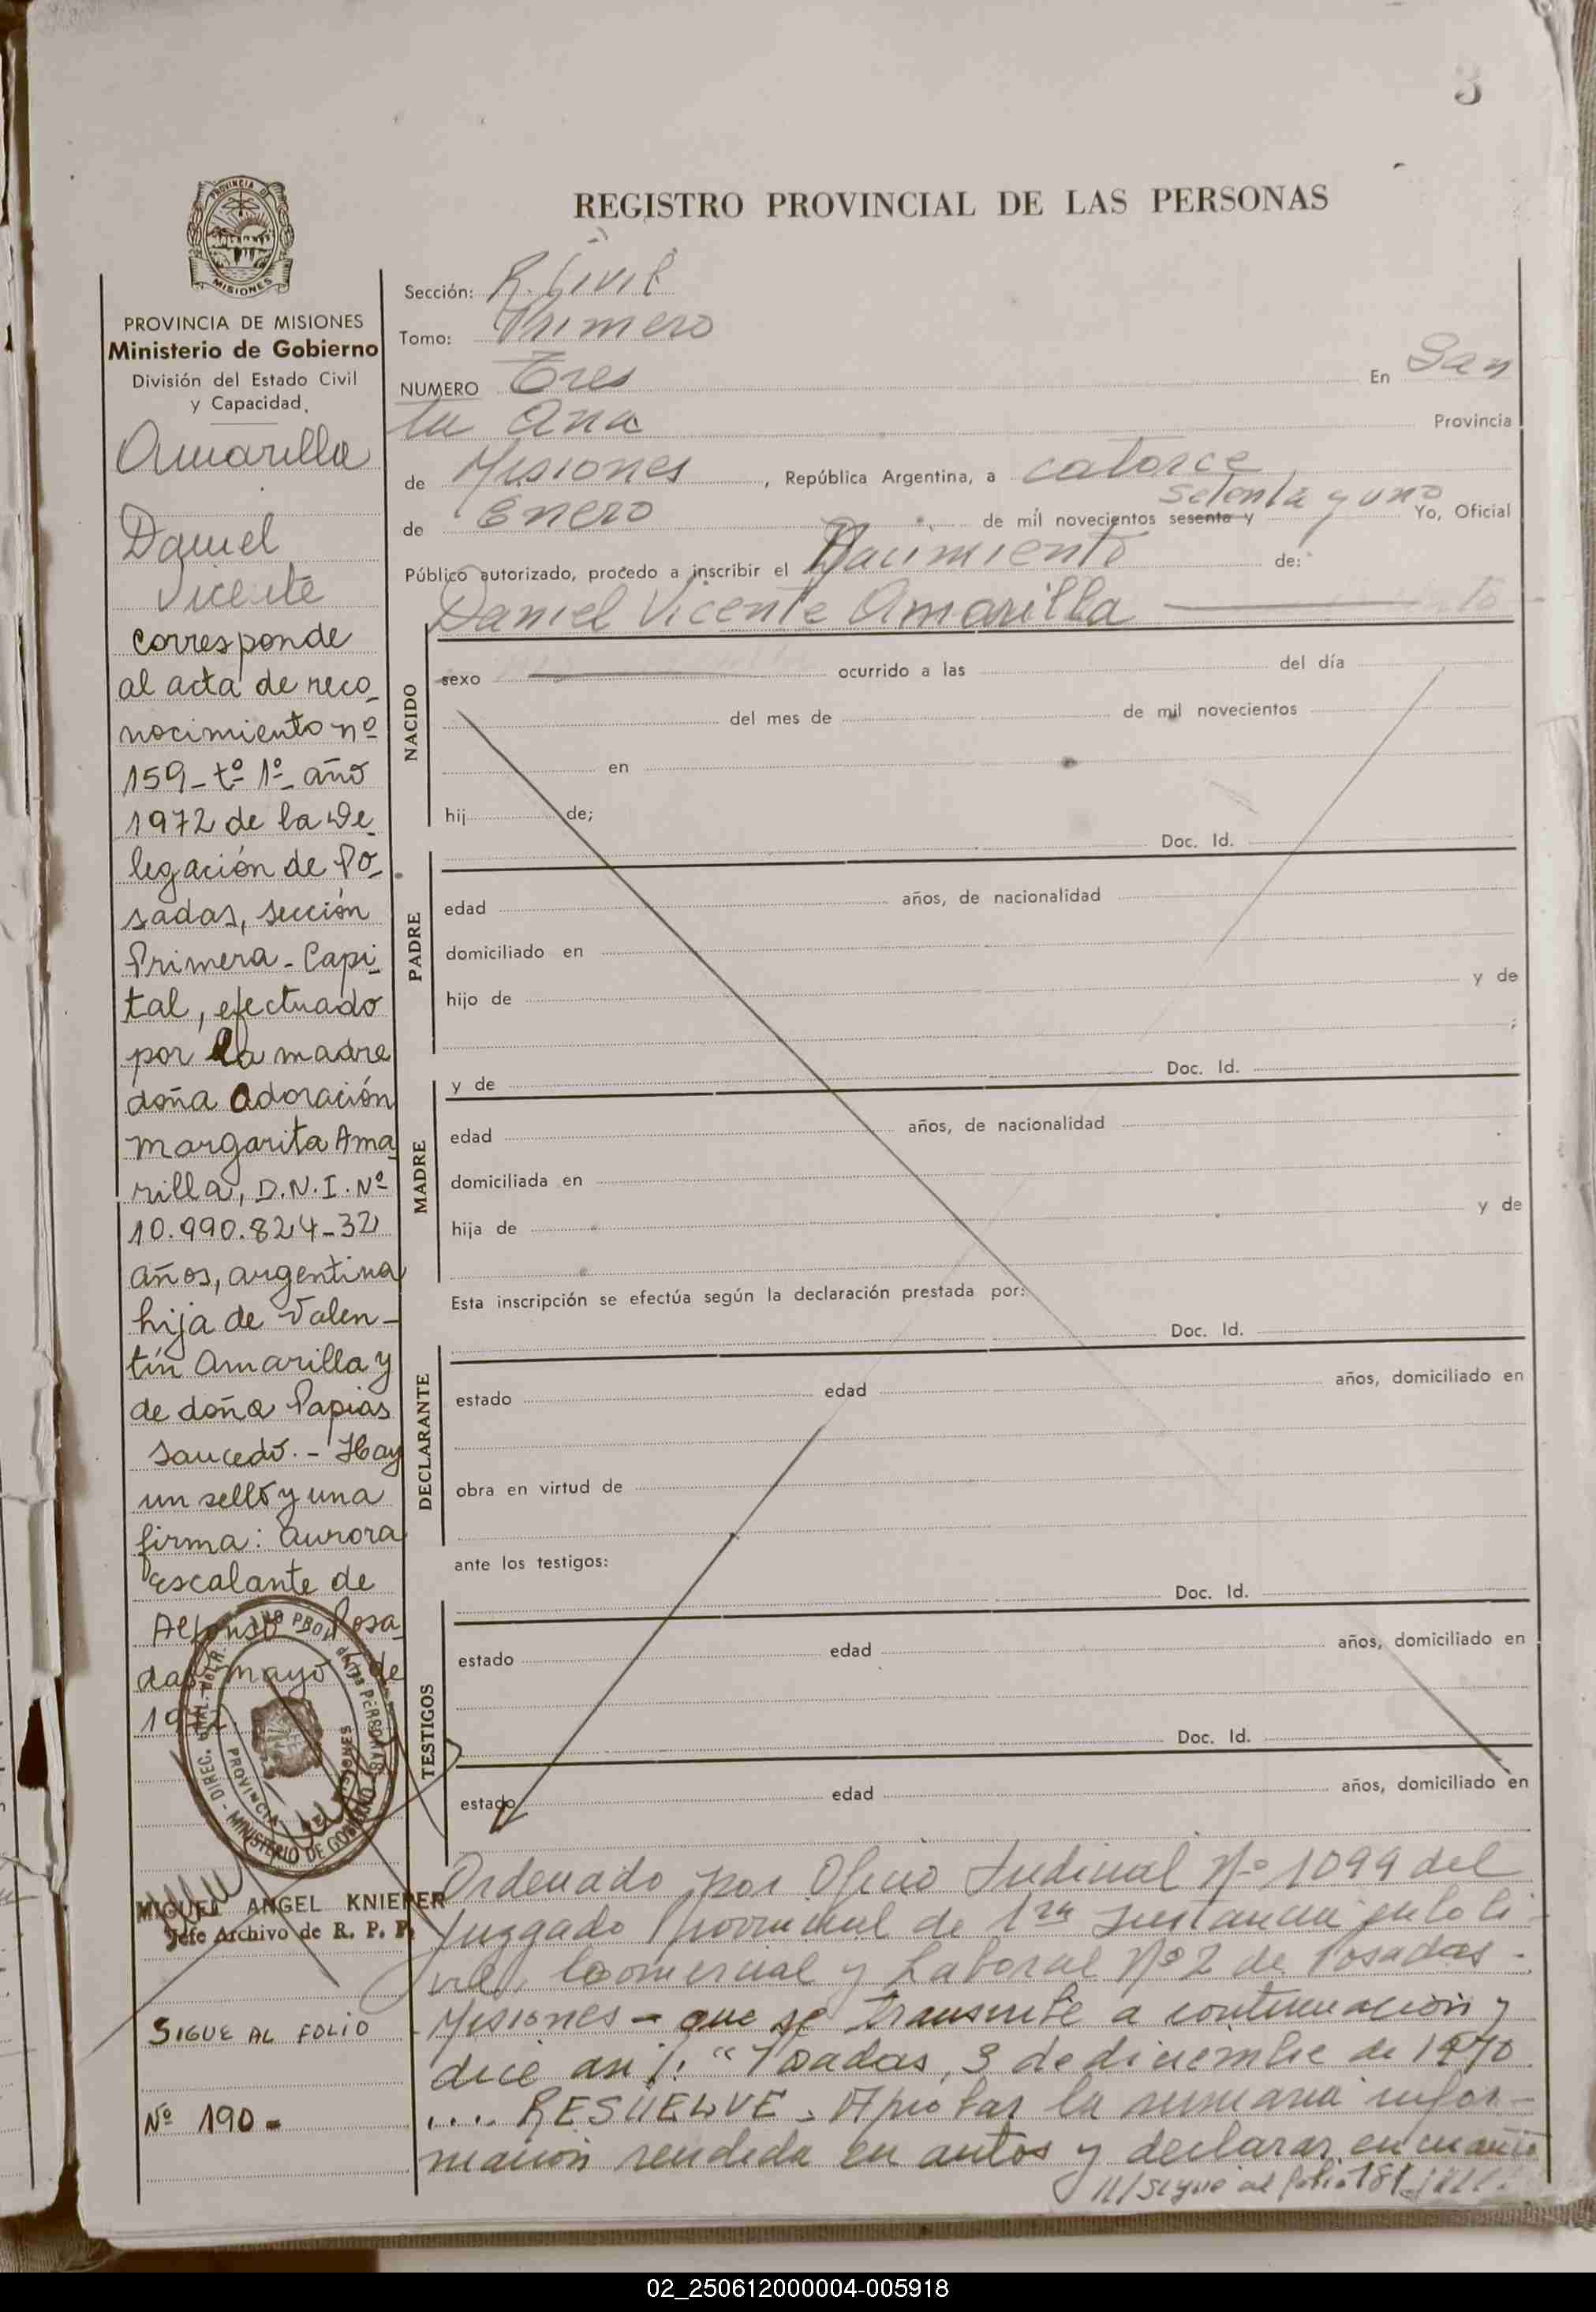 3
PROVINCIA DE
MISIONES
REGISTRO PROVINCIAL DE LAS PERSONAS
PROVINCIA DE MISIONES
Ministerio de Gobierno
División del Estado Civil
y Capacidad
Amarilla
Daniel
Vicente
corresponde
al acta de reco_
nocimiento nº
159_tº 1º_año
1972 de la De_
legación de Po_
sadas, sección
Primera_Capi_
tal, efectuado
por la madre
doña Adoración
Margarita Ama_
rilla, D.N.I. Nº
10.990.824_32
años, argentina
hija de Valen_
tín Amarilla y
de doña Papias
Saucedo.- Hay
un sello y una
firma: Aurora
Escalante de
Alfonso Posa_
das mayo de
1972.
MIGUEL ANGEL KNIEPER
Jefe Archivo de R. P. P.
SIGUE AL FOLIO
Nº 190-
Sección: R. Civil
Tomo: Primero
NUMERO Tres En San
ta Ana Provincia
de Misiones, República Argentina, a catorce
setenta y uno
de Enero de mil novecientos sesenta y Yo, Oficial
Público autorizado, procedo a inscribir el Nacimiento de:
Daniel Vicente Amarilla
NACIDO
sexo ocurrido a las del día
del mes de de mil novecientos
en
hij de;
Doc. Id.
PADRE
edad años, de nacionalidad
domiciliado en
hijo de y de
;
y de Doc. Id.
MADRE
edad años, de nacionalidad
domiciliada en
hija de y de
Esta inscripción se efectúa según la declaración prestada por:
Doc. Id.
DECLARANTE
estado edad años, domiciliado en
obra en virtud de
ante los testigos:
Doc. Id.
TESTIGOS
estado edad años, domiciliado en
Doc. Id.
estado edad años, domiciliado en
Ordenado por Oficio Judicial Nº 1099 del
Juzgado Provincial de 1ra Instancia en lo Ci-
vil, Comercial y Laboral Nº 2 de Posadas -
Misiones - que se transcribe a continuación y
dice así: "Posadas, 3 de diciembre de 1970
.... RESUELVE - Aprobar la sumaria infor-
mación rendida en autos y declarar en cuanto
//Sigue al folio 181
02_250612000004-005918